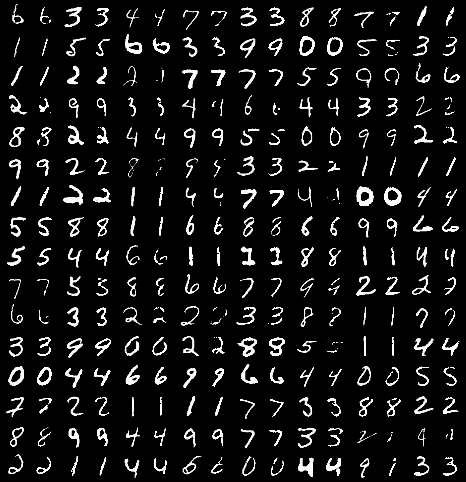 6 6 3 3 4 4 7 7 3 3 8 8 7 7 1 1
1 1 5 5 6 6 3 3 9 9 0 0 5 5 3 3
1 1 2 2 2 1 7 7 7 7 5 5 9 9 6 6
2 2 9 9 3 3 4 4 6 6 4 4 3 3 2 2
8 8 2 2 4 4 9 9 5 5 0 0 9 9 2 2
9 9 2 2 8 8 9 9 3 3 2 2 1 1 1 1
1 1 2 2 1 1 4 4 7 7 4 0 0 4 4
5 5 8 8 1 1 6 6 8 8 6 6 9 9 6 6
5 5 4 4 6 6 1 1 1 1 8 8 1 1 4 4
7 7 5 5 8 8 6 6 7 7 9 9 2 2 2 2
6 6 3 3 2 2 2 2 3 3 8 8 1 1 7 7
3 3 9 9 0 0 2 2 8 8 5 5 1 1 4 4
0 0 4 4 6 6 9 9 6 6 4 4 0 0 5 5
7 7 2 2 1 1 1 1 7 7 3 3 8 8 2 2
8 8 9 9 4 4 9 9 7 7 3 3 4
2 2 1 1 4 4 6 0 0 4 4 9 3 3